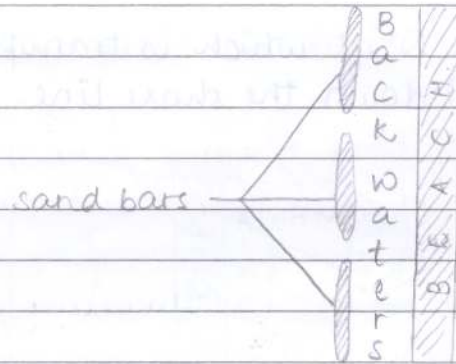 sand bars
Backwaters
BEACH